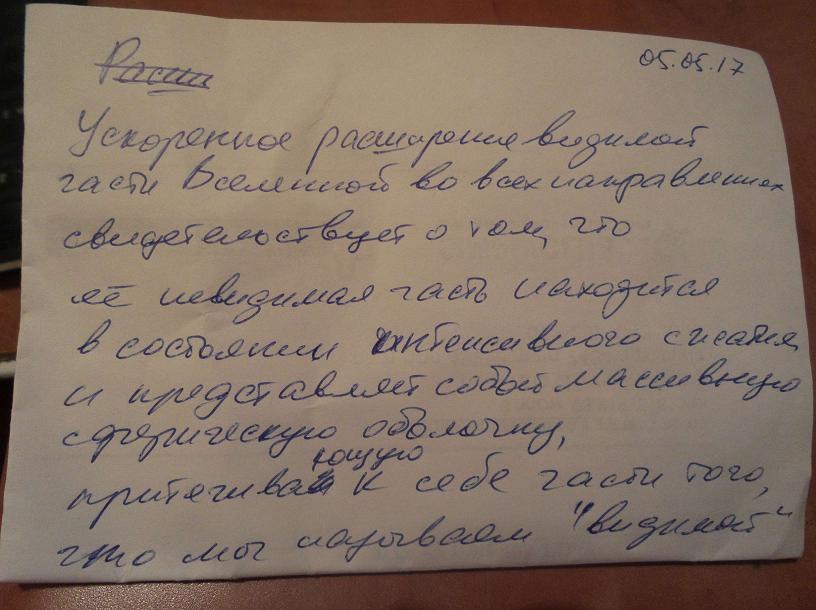 05.05.17
Расши
Ускоренное расширение видимой
части Вселенной во всех направлениях
свидетельствует о том, что
её невидимая часть находится
в состоянии интенсивного сжатия
и представляет собой массивную
сферическую оболочку,
притягивающую к себе части того,
что мы называем "видимой"